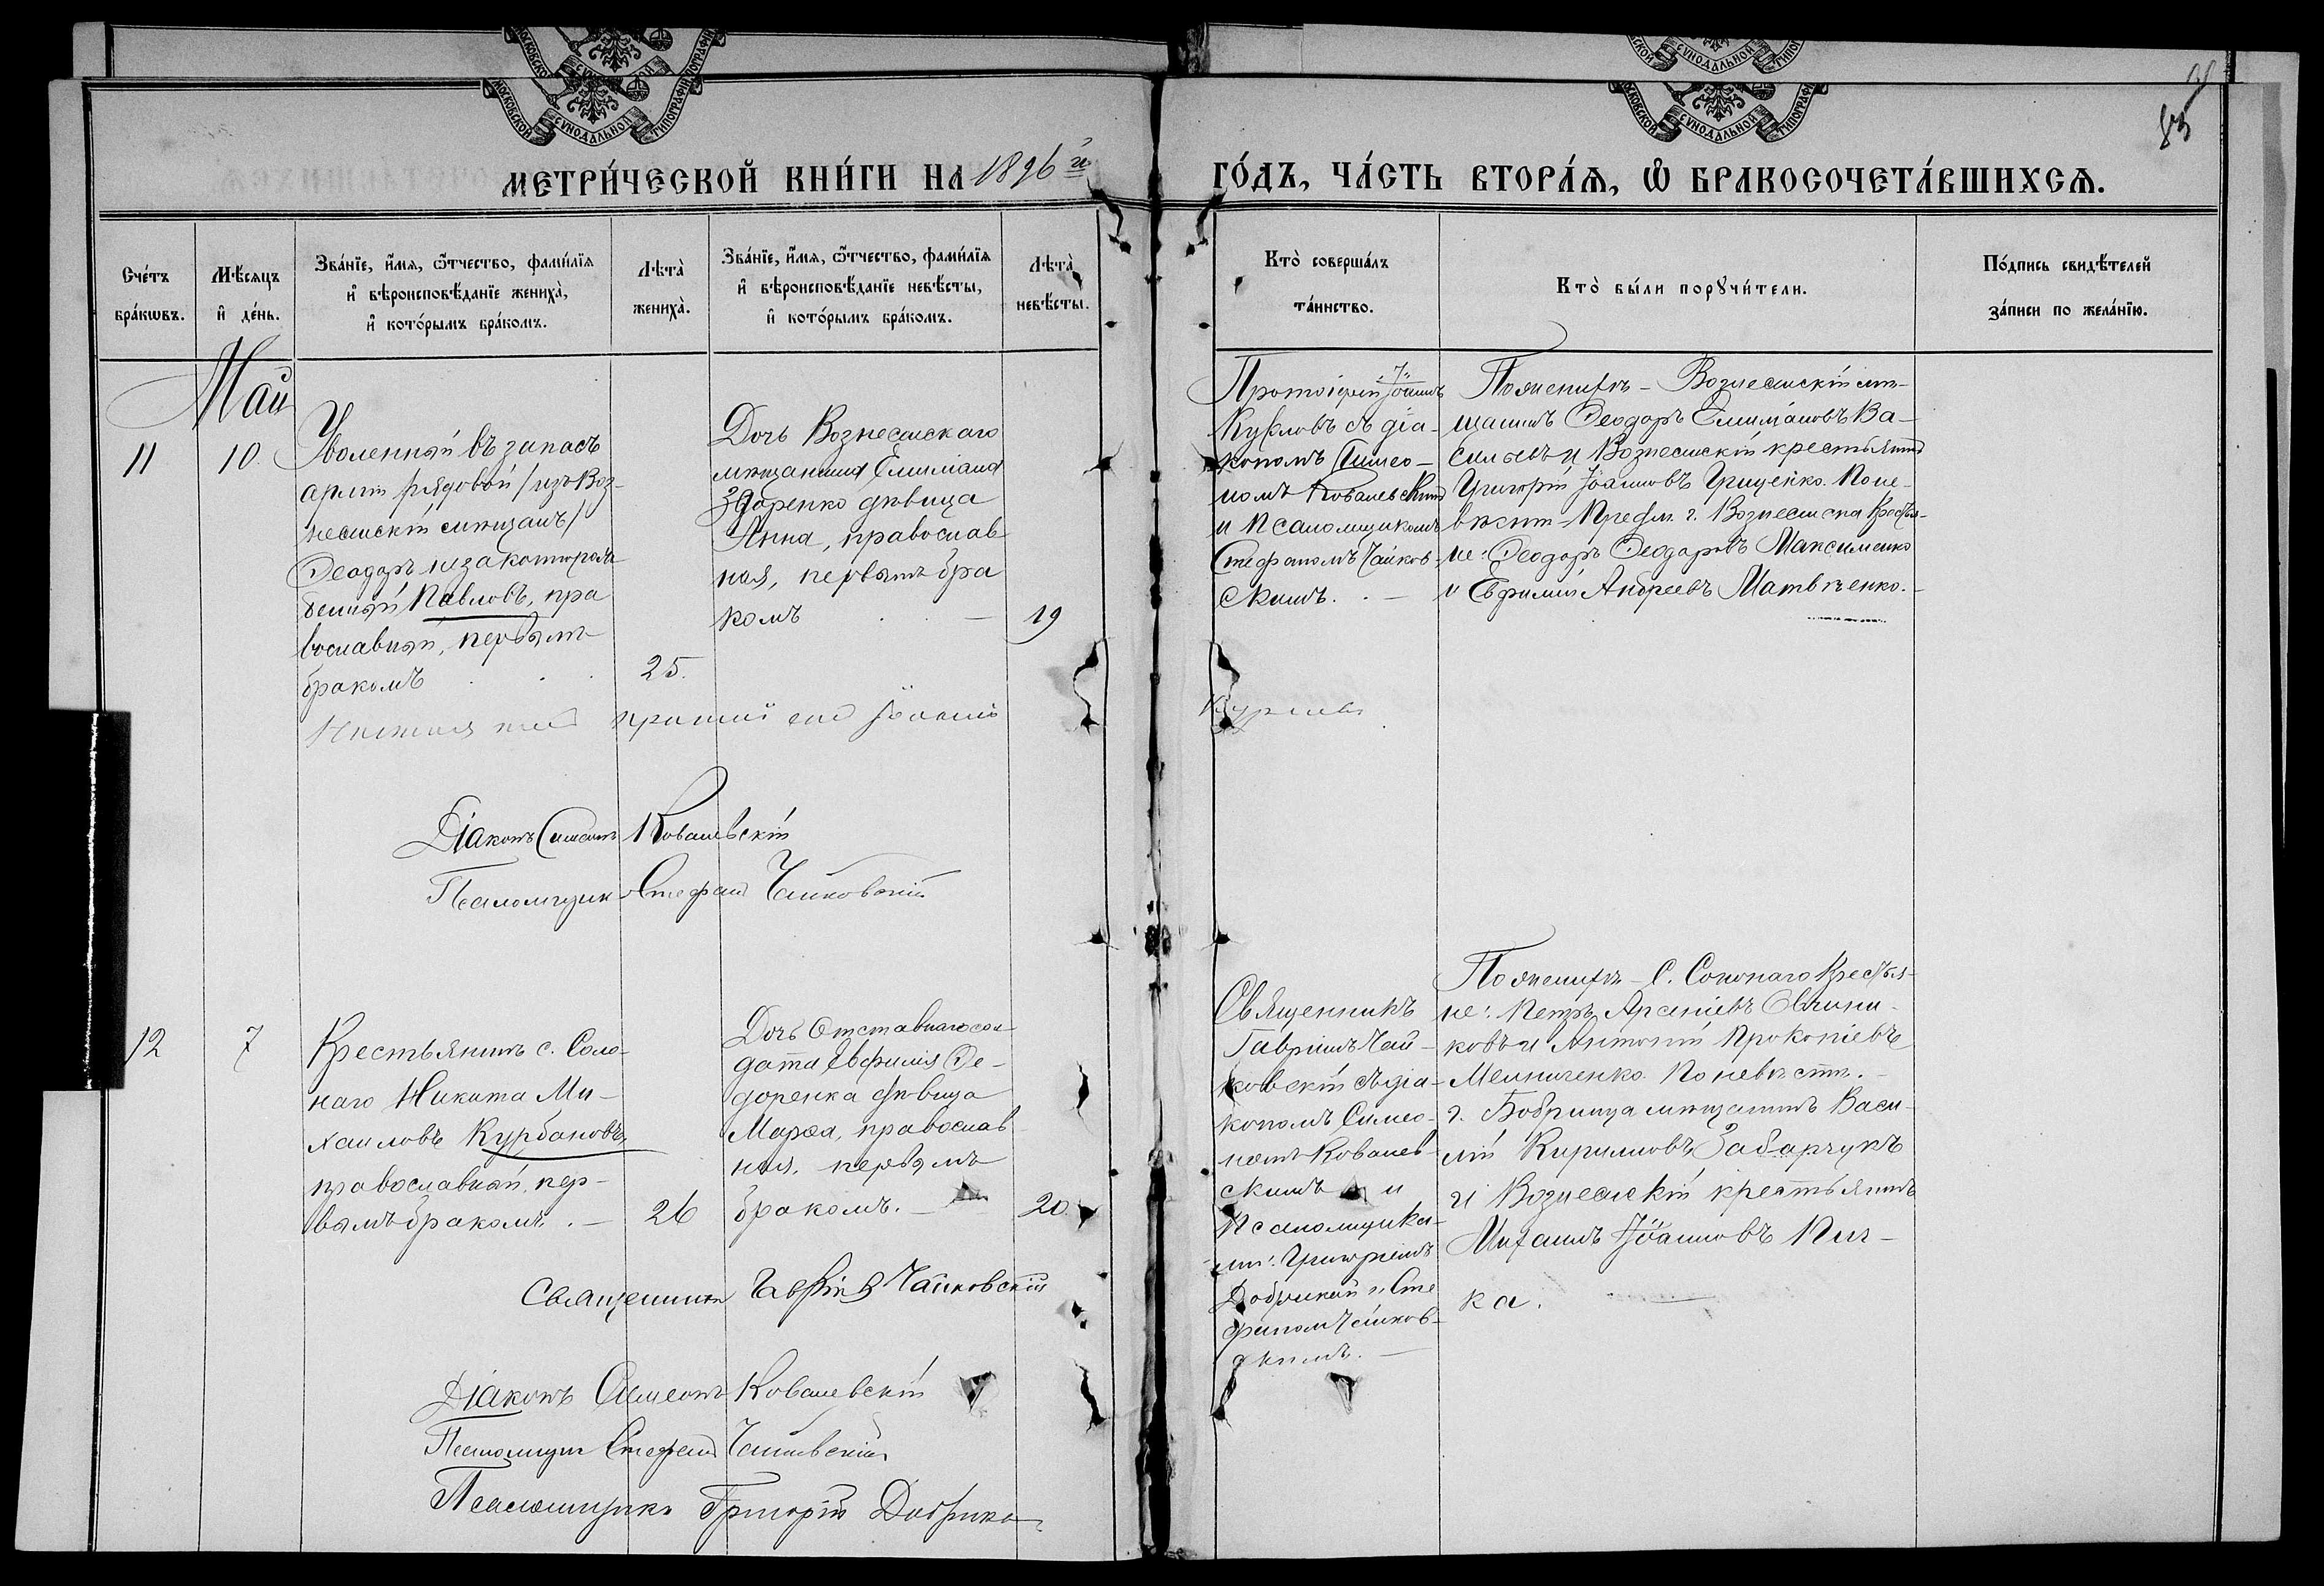 МОСКОВСКОЙ СУНОДАЛЬНОЙ ТИПОГРАФІИ
МОСКОВСКОЙ СУНОДАЛЬНОЙ ТИПОГРАФІИ
85
МЕТРИ́ЧЕСКОЙ КНИ́ГИ НА 1896й ГО́ДЪ, ЧА́СТЬ ВТОРА́Ѧ, Ѡ҆ БРАКОСОЧЕТА́ВШИХСѦ.
Сче́тъ бра́кѡвъ.
Мѣ́сяцъ и҆ де́нь.
Зва́нїе, и҆́мѧ, ѻ҆́тчество, фами́лїѧ
и҆ вѣроисповѣ́данїе жениха̀,
и҆ кото́рымъ бра́комъ.
Лѣта̀ жениха̀.
Зва́нїе, и҆́мѧ, ѻ҆́тчество, фами́лїѧ
и҆ вѣроисповѣ́данїе невѣ́сты,
и҆ кото́рымъ бра́комъ.
Лѣта̀ невѣ́сты.
Кто̀ соверша́лъ та́инство.
Кто̀ бы́ли порꙋчи́тели.
По́дпись свидѣ́телей за́писи по жела́нїю.
Май
11
10.
Уволенный въ запасъ
арміи рядовой /изъ Воз-
несенскій мѣщанъ/
Ѳеодоръ незаконнорож-
денный Павловъ, пра
вославный, первымъ
бракомъ
25.
Дочь Вознесенскаго
мѣщанина Емиліана
Здоренко дѣвица
Анна, православ
ная, первымъ бра
комъ
19
Протоіерей Іоаннъ
Курловъ съ діа-
кономъ Симео-
номъ Ковалевскимъ
и Псаломщикомъ
Стефаномъ Чайков-
скимъ.
По женихѣ - Вознесенскій мѣ-
щанинъ Ѳеодоръ Емиліановъ Ва-
сильевъ и Вознесенскій крестьянинъ
Григорій Іоанновъ Гриценко. По не-
вѣстѣ - Предм. г. Вознесенска Крестья-
не: Ѳеодоръ Ѳеодоровъ Максименко
и Евфимій Андреевъ Матвѣенко.
Іоаннъ Курловъ
Діаконъ Симеонъ Ковалевскій
Псаломщикъ Стефанъ Чайковскій
12
7
Крестьянинъ с. Соло-
наго Никита Ми-
хаиловъ Курбановъ,
православный, пер-
вымъ бракомъ.
26
Дочь Отставнаго сол-
дата Евфимія Ѳе-
доренка дѣвица
Марѳа, православ
ная, первымъ
бракомъ.
20.
Священникъ
Гавріилъ Чай-
ковскій съ діа-
кономъ Симео-
номъ Ковалев-
скимъ и
Псаломщика-
ми: Григоріемъ
Добрикой и Сте
фаномъ Чайков-
скимъ.
По женихѣ - С. Солонаго Крестья-
не: Петръ Арсеніевъ Овчини-
ковъ и Антоній Прокопіевъ
Мельниченко. По невѣстѣ.
г. Бобринца мѣщанинъ Васи-
лій Кирилловъ Забарчукъ
и Вознесенскій крестьянинъ
Михаилъ Іоанновъ Пич-
ка.
Священникъ Гавріилъ Чайковскій
Діаконъ Симеонъ Ковалевскій
Псаломщикъ Стефанъ Чайковскій
Псаломщикъ Григорій Добрика